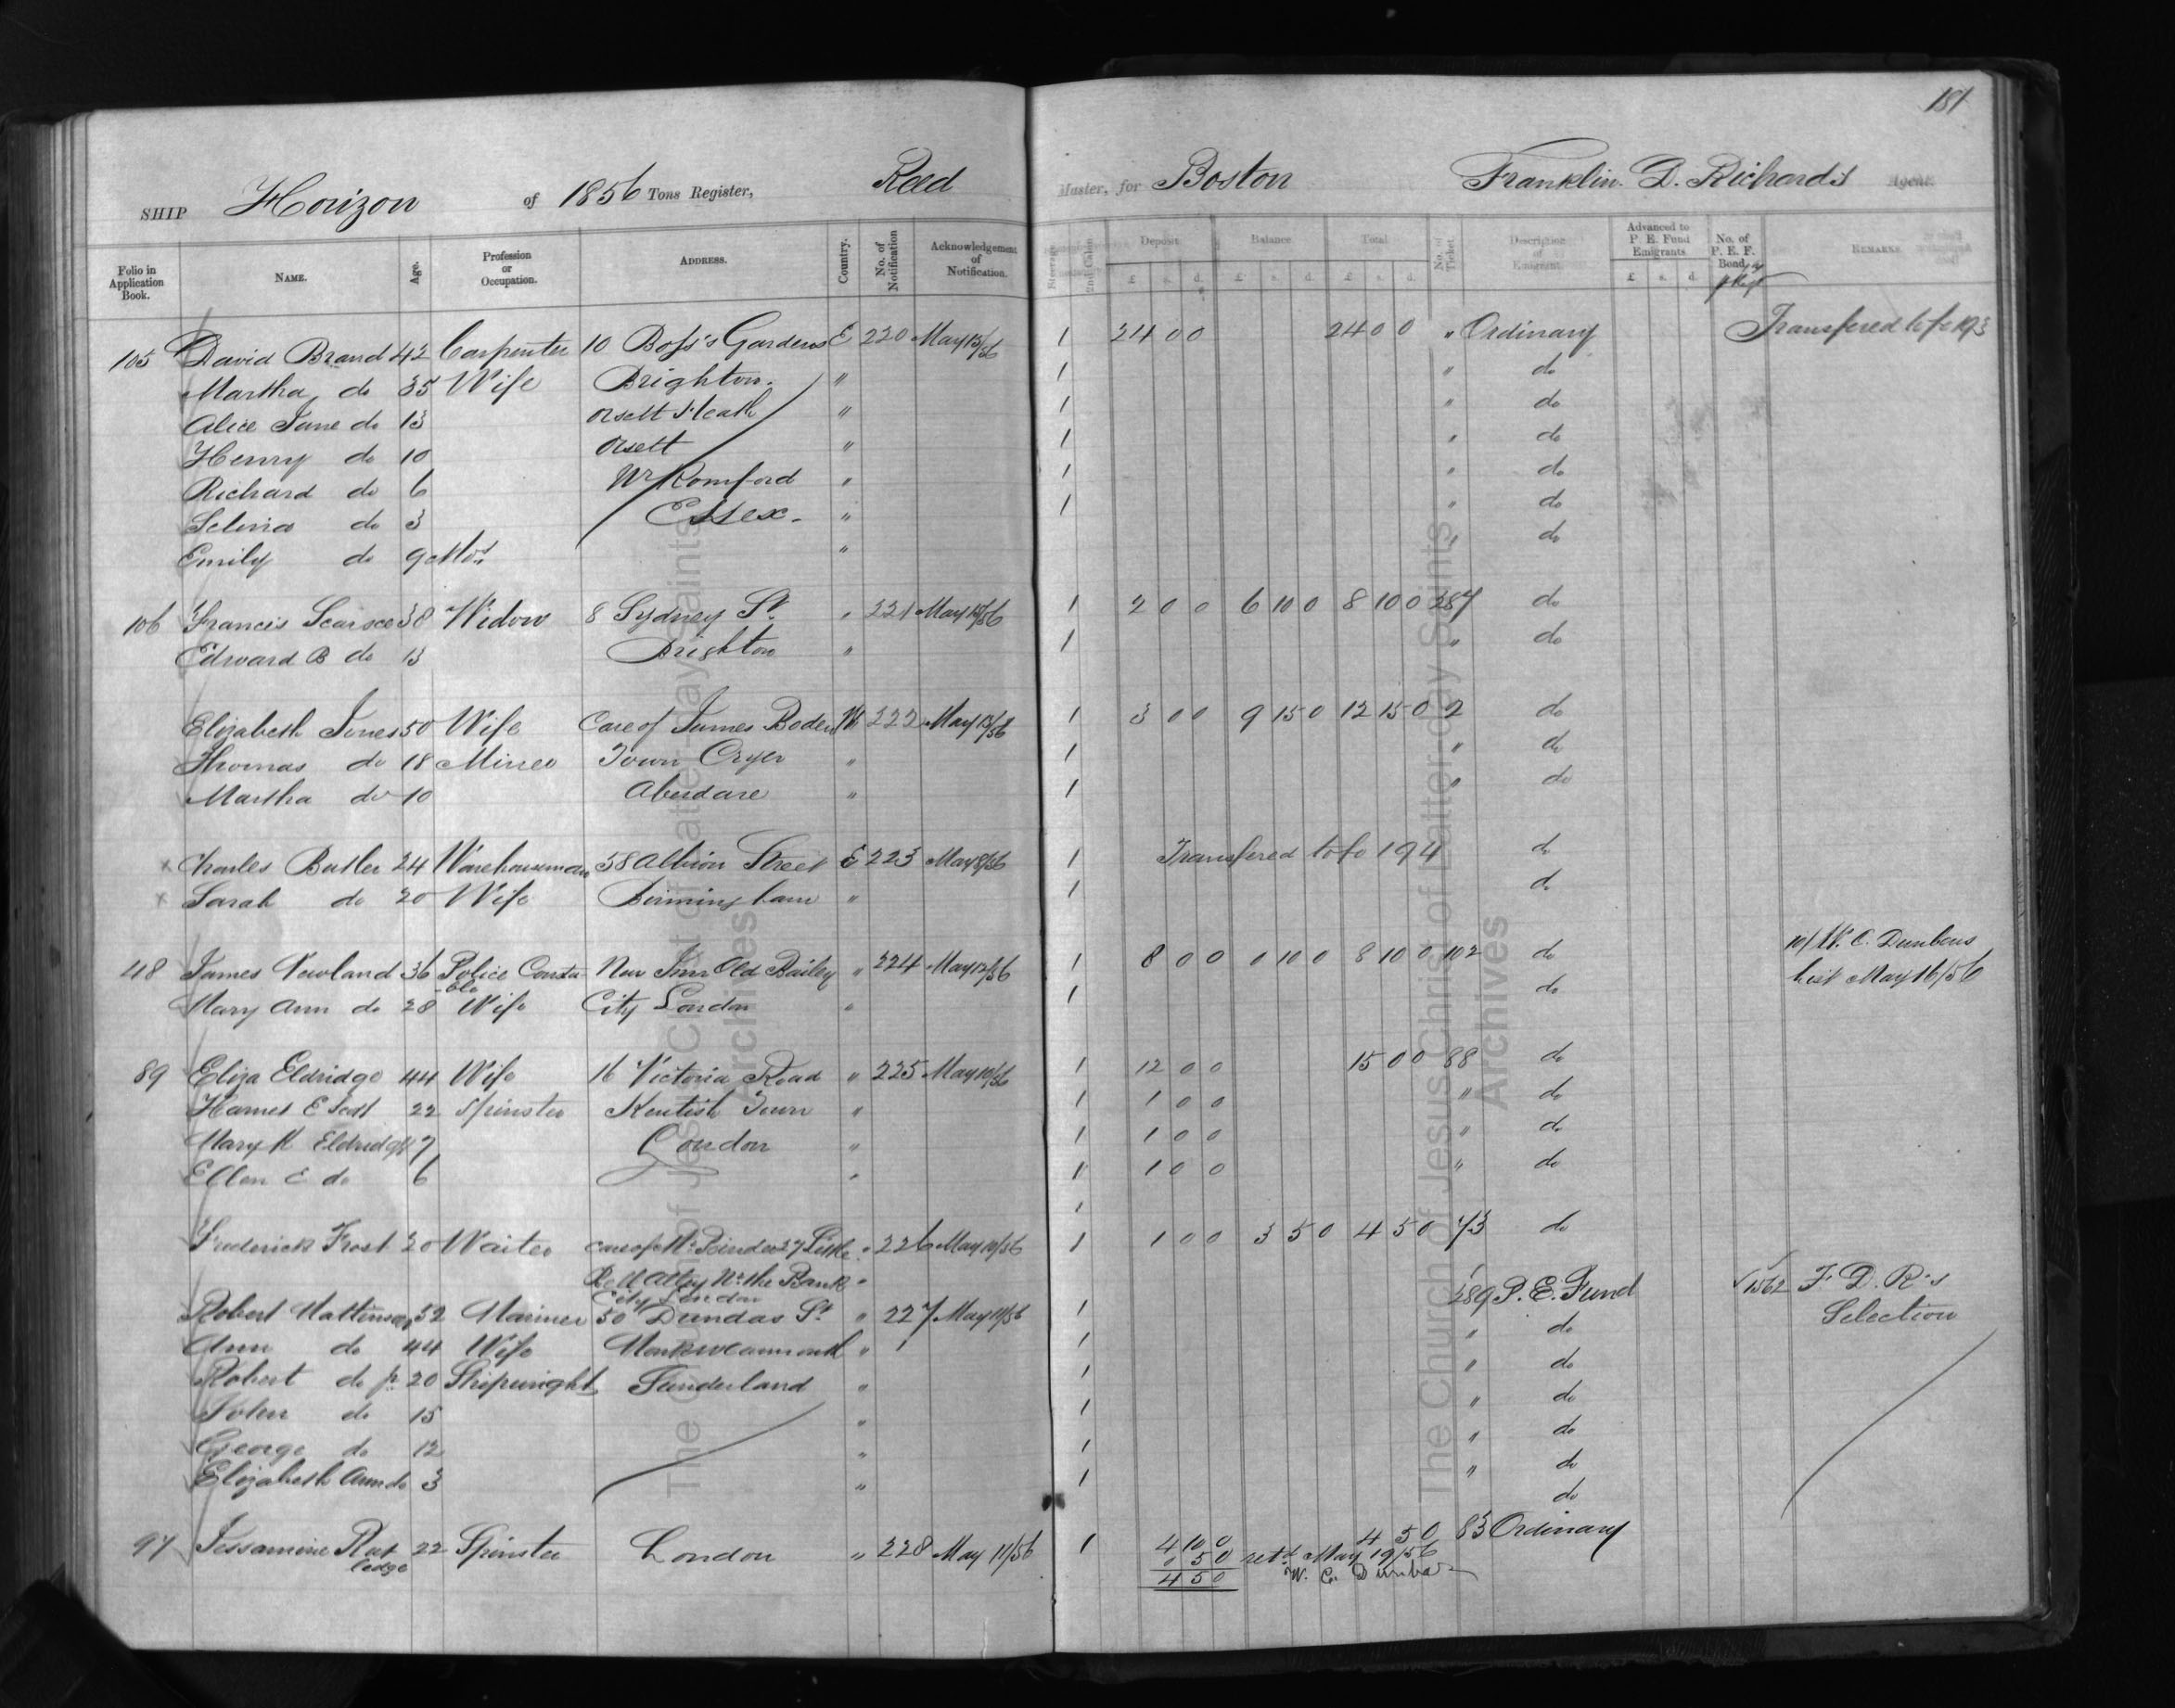 181
SHIP Horizon of 1856 Tons Register, Reed Master, for Boston Franklin. D. Richards Agent.
Folio in Application Book. NAME. Age. Profession or Occupation. ADDRESS. Country. No. of Notification Acknowledgement of Notification. Steerage 2nd Cabin Deposit Balance Total No. of Ticket. Description of Emigrant. Advanced to P. E. Fund Emigrants No. of P. E. F. Bond REMARKS.
£ s. d. £ s. d. £ s. d. £ s. d.
105 David Brand 42 Carpenter 10 Boss's Gardens E 220 May 13/56 1 24 0 0 24 0 0 " Ordinary Transfered to fo 193
Martha do 35 Wife Brighton. " 1 " do
Alice Jane do 13 Orsett Heath " 1 " do
Henry do 10 Orsett " 1 " do
Richard do 6 Nr Romford " 1 " do
Selina do 3 Essex. " 1 " do
Emily do 9 Mos. " " do
106 Francis 38 Widow 8 Sydney St. " 221 May 14/56 1 2 0 0 6 10 0 8 10 0 287 do
Edward B do 13 Brighton " 1 " do
Elizabeth Jones 50 Wife Care of James Boden W 222 May 13/56 1 3 0 0 9 15 0 12 15 0 2 do
Thomas do 18 Miner Town Cryer " 1 " do
Martha do 10 Aberdare " 1 " do
x Charles Butler 24 Warehouseman 58 Albion Street E 223 May 8/56 1 Transfered to fo 194 do
x Sarah do 20 Wife Birmingham " 1 do
48 James Newland 36 Police Consta New Inn Old Bailey " 224 May 12/56 1 8 0 0 0 10 0 8 10 0 102 do 10/ W. C. Dunbars
-ble
Mary Ann do 28 Wife City London " 1 do list May 16/56
89 Eliza Eldridge 44 Wife 16 Victoria Road " 225 May 10/56 1 12 0 0 15 0 0 88 do
E Scott 22 Spinster Kentish Town " 1 1 0 0 " do
Mary K Eldridge 7 London " 1 1 0 0 " do
Ellen E do 6 " 1 1 0 0 " do
1
Frederick Frost 20 Waiter care of Mr 27 Little " 226 May 10/56 1 1 0 0 3 5 0 4 5 0 73 do
Bell Alley Nr. the Bank "
City London
Robert 52 Mariner 50 Dundas St " 227 May 11/56 1 289 P. E. Fund √1562 F D. R's
Ann do 44 Wife Monkwearmouth " 1 " do Selection
Robert do jr 20 Shipwright Sunderland " 1 " do
John do 15 " 1 " do
George do 12 " 1 " do
Elizabeth Ann do 3 " 1 " do
do
97 Jessamine Rout 22 Spinster London " 228 May 11/56 1 4 10 0 4 5 0 83 Ordinary
ledge 0 5 0 retd May 19/56
4 5 0 W. C. Dunbar
The Church of Jesus Christ of Latter-day Saints
Archives
The Church of Jesus Christ of Latter-day Saints
Archives